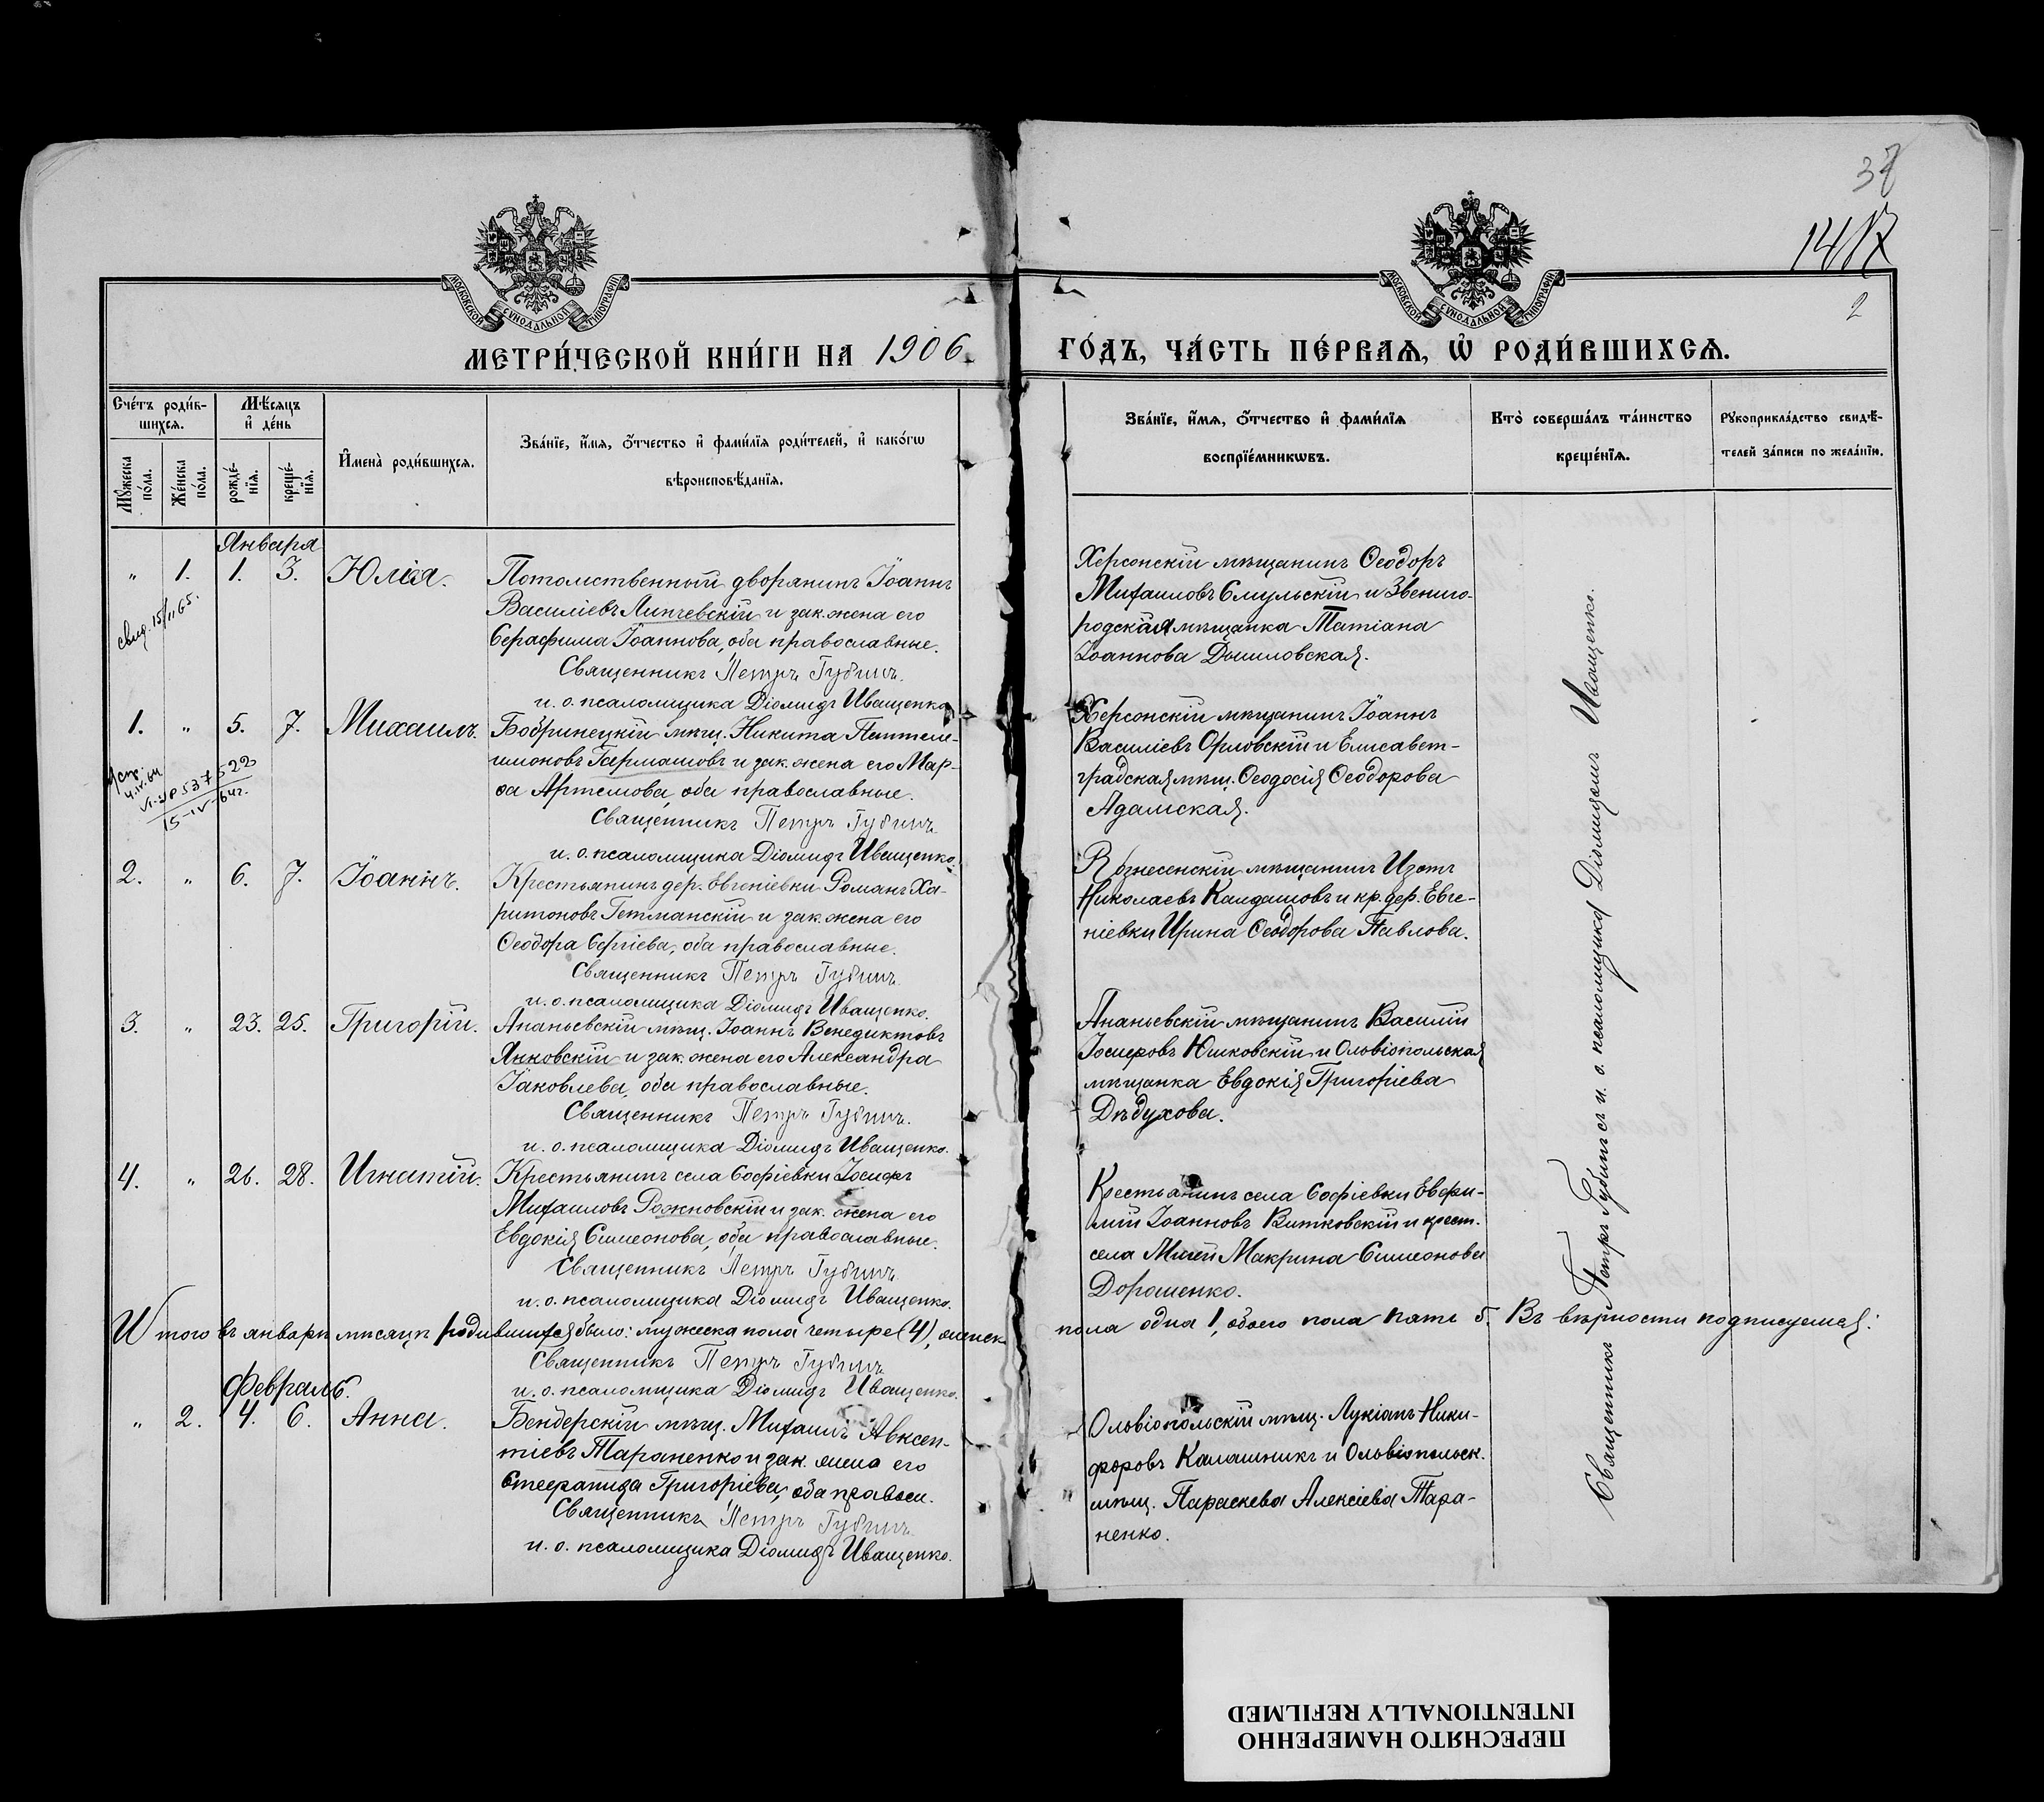 38
1417
2
МОСКОВСКОЙ СѴНОДАЛЬНОЙ ТИПОГРАФІИ
МОСКОВСКОЙ СѴНОДАЛЬНОЙ ТИПОГРАФІИ
МЕТРИ́ЧЕСКОЙ КНИ́ГИ НА 1906
ГО́ДЪ, ЧА́СТЬ ПЕ́РВАѦ, Ѡ҆ РОДИ́ВШИХСѦ.
Сче́тъ роди́в-
шихсѧ.
Мѣ́сѧцъ
и҆ де́нь
Мꙋ́жеска
по́ла.
Же́нска
по́ла.
рожде́-
нїѧ.
креще́-
нїѧ.
И҆мена̀ роди́вшихсѧ.
Зва́нїе, и҆́мѧ, ѻ҆́тчество и҆ фами́лїѧ роди́телей, и҆ како́гѡ
вѣроисповѣ́данїѧ.
Зва́нїе, и҆́мѧ, ѻ҆́тчество и҆ фами́лїѧ
воспрїе́мникѡвъ.
Кто̀ соверша́лъ та́инство
креще́нїѧ.
Рꙋкоприкла́дство свидѣ́-
телей за́писи по жела́нїю.
Января
" 1. 1. 3. Юлія.
свид. 15/II 65.
Потомственный дворянинъ Іоаннъ
Василіевъ Липчевскій и зак. жена его
Серафима Іоаннова, оба православные.
Священникъ Петръ Губинъ.
и. о. псаломщика Діомидъ Иващенко
Херсонскій мѣщанинъ Ѳеодоръ
Михаиловъ Смульскій и Звениго-
родская мѣщанка Татіана
Іоаннова Дымловская.
1. " 5. 7. Михаилъ.
15-IV-64г.
Бобринецкій мѣщ. Никита Пантеле-
имоновъ Гармашовъ и зак. жена его Мар-
ѳа Артемова, оба православные.
Священникъ Петръ Губинъ.
и. о. псаломщика Діомидъ Иващенко.
Херсонскій мѣщанинъ Іоаннъ
Василіевъ Орловскій и Елисавет-
градская мѣщ. Ѳеодосія Ѳеодорова
Адамская.
2. " 6. 7. Іоаннъ.
Крестьянинъ дер. Евгеніевки Романъ Ха-
ритоновъ Гетманскій и зак. жена его
Ѳеодора Сергіева, оба православные.
Священникъ Петръ Губинъ.
и. о. псаломщика Діомидъ Иващенко.
Вознесенскій мѣщанинъ Изотъ
Николаевъ Кандашовъ и кр. дер. Евге-
ніевки Ирина Ѳеодорова Павлова.
3. " 23. 25. Григорій.
Ананьевскій мѣщ. Іоаннъ Венедиктовъ
Янковскій и зак. жена его Александра
Іаковлева, оба православные.
Священникъ Петръ Губинъ.
и. о. псаломщика Діомидъ Иващенко.
Ананьевскій мѣщанинъ Василій
Іосифовъ Юшковскій и Ольвіопольская
мѣщанка Евдокія Григоріева
Дѣдухова.
4. " 26. 28. Игнатій.
Крестьянинъ села Софіевки Іосифъ
Михаиловъ Рожновскій и зак. жена его
Евдокія Симеонова, оба православные.
Священникъ Петръ Губинъ.
и. о. псаломщика Діомидъ Иващенко.
Крестьянинъ села Софіевки Евфи-
мій Іоанновъ Витковскій и крест.
села Мигей Макрина Симеонова
Дорошенко.
Итого въ январѣ мѣсяцѣ родившихся было: мужеска пола четыре (4), женск
пола одна 1, обоего пола пять 5. Въ вѣрности подписуемся:
Священникъ Петръ Губинъ
и. о. псаломщика Діомидъ Иващенко.
Февраль.
" 2. 4. 6. Анна.
Бендерскій мѣщ. Михаилъ Авксен-
тіевъ Тараненко и зак. жена его
Стефанида Григоріева, оба правосл.
Священникъ Петръ Губинъ
и. о. псаломщика Діомидъ Иващенко.
Ольвіопольскій мѣщ. Лукіанъ Ники-
форовъ Калашникъ и Ольвіопольск.
мѣщ. Параскева Алексіевна Тара-
ненко.
Священникъ Петръ Губинъ съ и. о. псаломщика Діомидомъ Иващенко.
ПЕРЕСНЯТО НАМЕРЕННО
INTENTIONALLY REFILMED